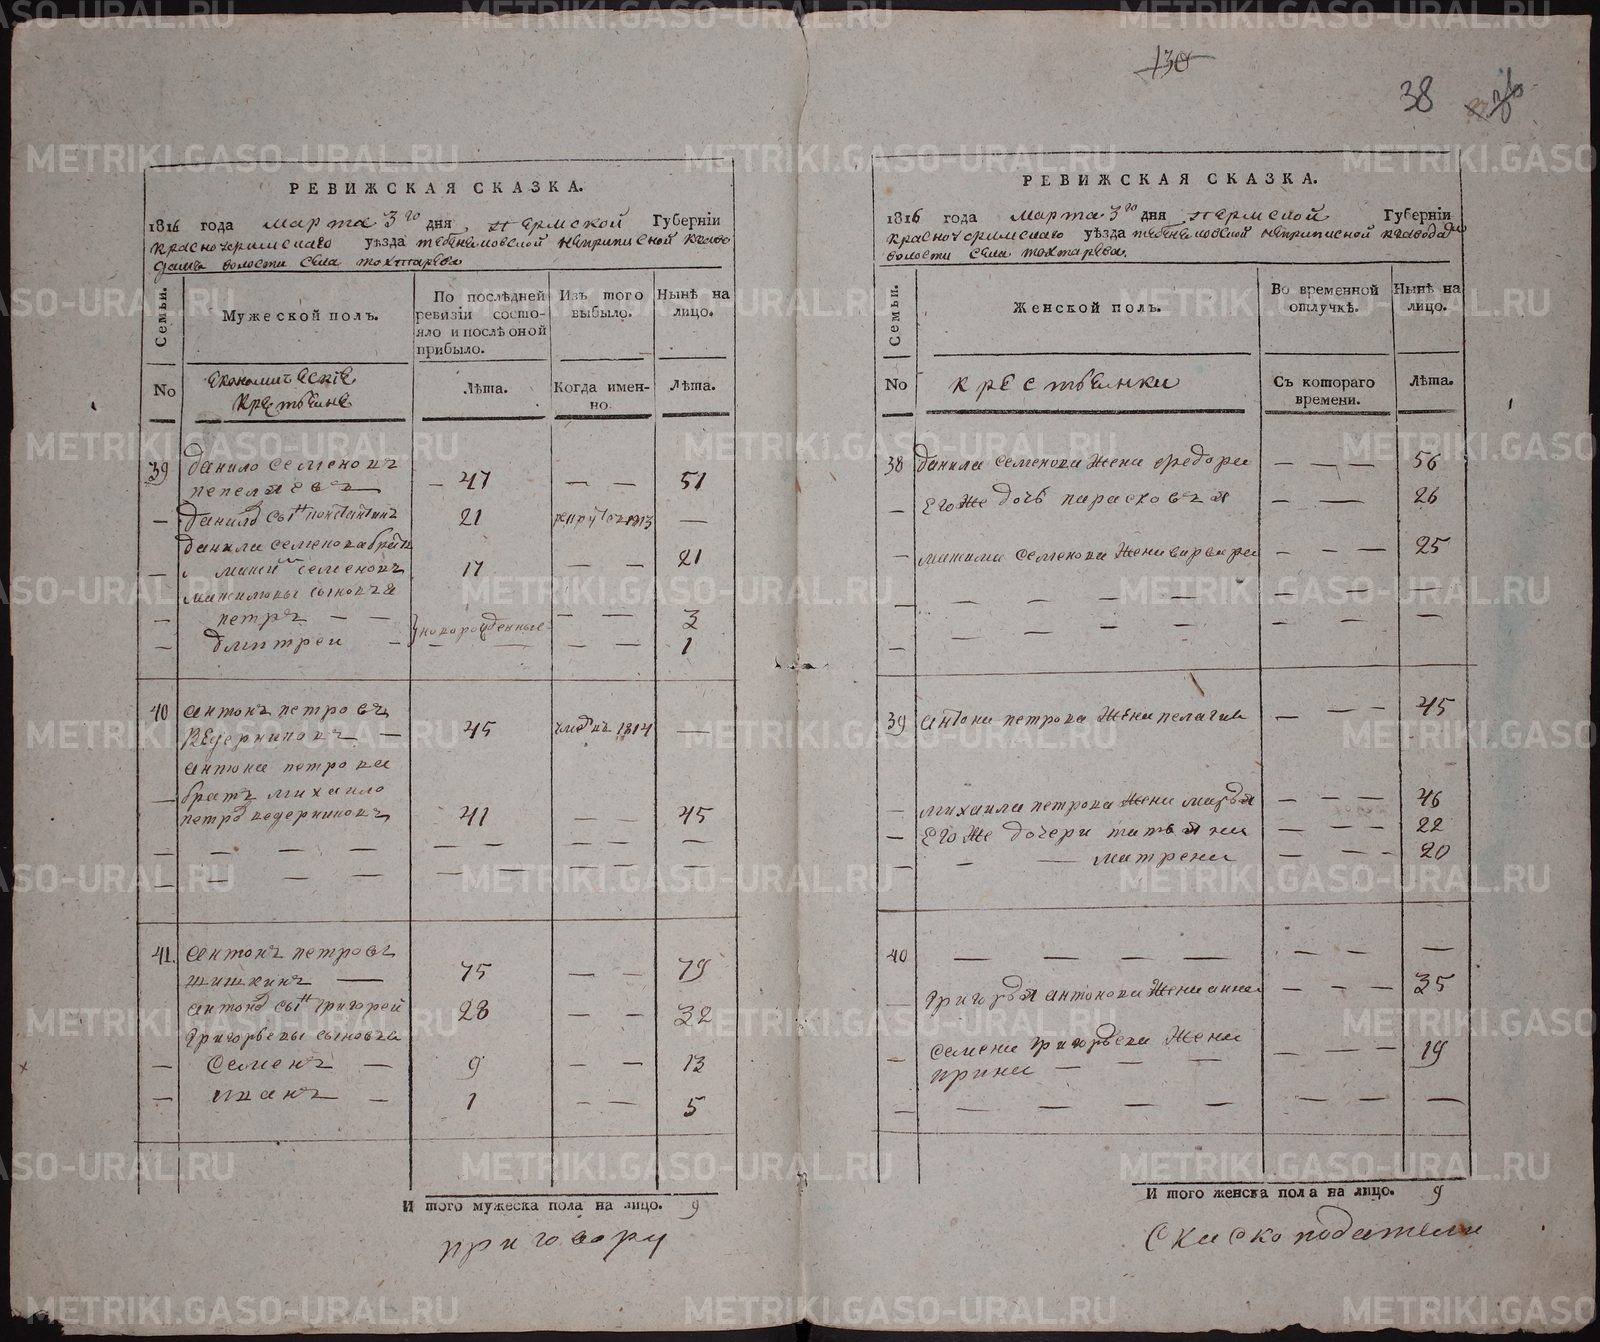 РЕВИЖСКАЯ СКАЗКА.
1816 года марта 3го дня пермской Губерніи
красноуфимскаго уѣзда
волости села тохтарева
Семьи.
Мужеской полъ.
По послѣдней ревизіи состояло и послѣ оной прибыло.
Изъ того выбыло.
Нынѣ на лицо.
No
економические крестьяне
Лѣта.
Когда именно.
Лѣта.
39 данило семеновъ
пепеляевъ — 47 — — 51
— данилы сынъ константинъ 21 рекрутъ 1813 —
данила семенова братъ
— семеновъ 17 — — 21
сыновья
— петръ — — новорожденные — — 3
— дмитреи — — — — — 1
40 антонъ петровъ
кедерниковъ — 45 1814 —
антона петрова
— братъ михаило
петровъ кедерниковъ 41 — — 45
— — — — — — — —
— — — — — — — —
41. антонъ петровъ
шишкинъ — 75 — — 79
антона сынъ григорей 28 — — 32
григорьевы сыновья
— семенъ — 9 — — 13
— иванъ — 1 — — 5
И того мужеска пола на лицо. 9
приговору
130
38
РЕВИЖСКАЯ СКАЗКА.
1816 года марта 3го дня пермской Губерніи
красноуфимскаго уѣзда
волости села тохтарева.
Семьи.
Женской полъ.
Во временной отлучкѣ.
Нынѣ на лицо.
No
крестьянки
Съ котораго времени.
Лѣта.
38 данила семенова жена федора — — — 56
— его же дочь парасковья — — 26
— максима семенова жена варвара — — — 25
— — — — — — — —
— — — — — — —
39 антона петрова жена пелагия — — — 45
— михаила петрова жена марья — — — 46
— его же дочери татьяна — — — 22
— — — матрена — — - 20
40 — — — — — — —
— григорья антонова жена анна — - — 35
— семена григорьева жена
ирина — — — — — — 19
— — — — — — — —
И того женска пола на лицо. 9
скаско подателя
METRIKI.GASO-URAL.RU